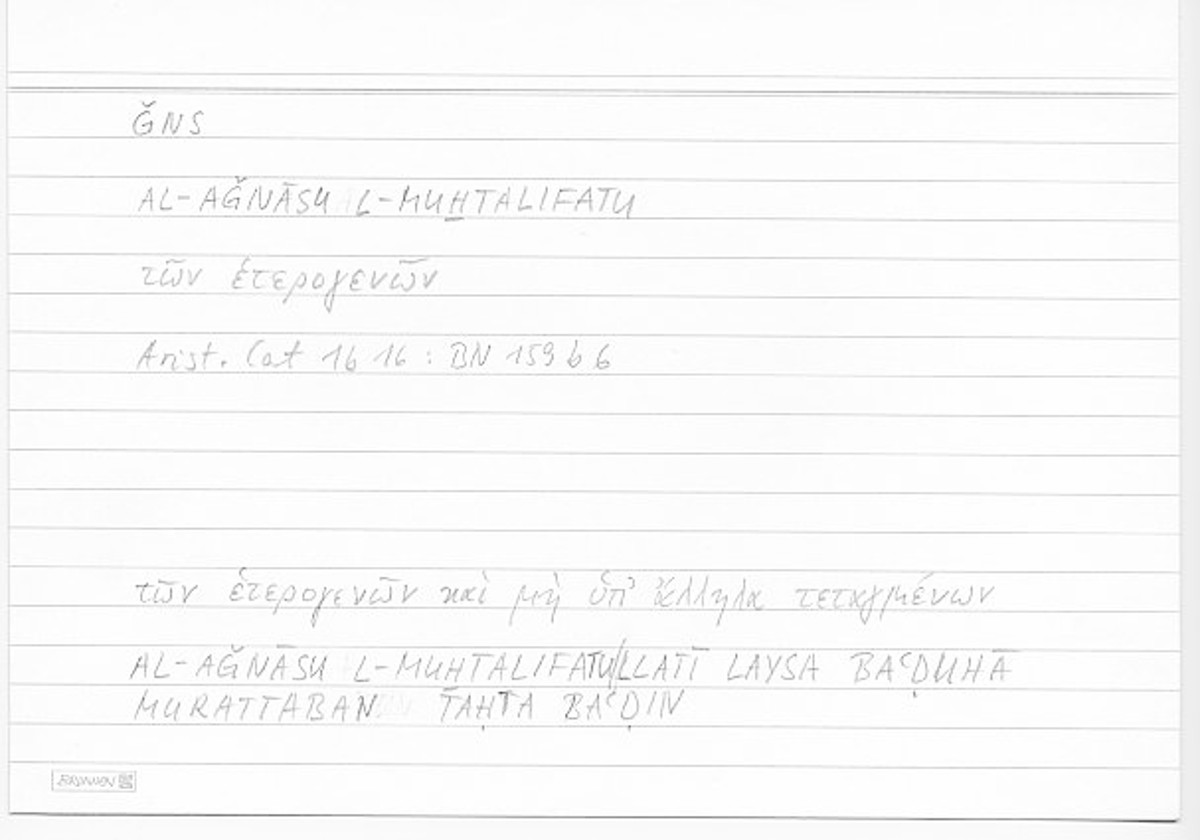 ǦNS
AL-AǦNĀSU L-MUH̱TALIFATU
τῶν ἑτερογενῶν
Arist. Cat 1b 16 : BN 159 b 6
τῶν ἑτερογενῶν καὶ μὴ ὑπ' ἄλληλα τεταγμένων
AL-AǦNĀSU L-MUHTALIFATU/LLATĪ LAYSA BAʿḌUHĀ
MURATTABAN TAḤTA BAʿḌIN
BRUNNEN